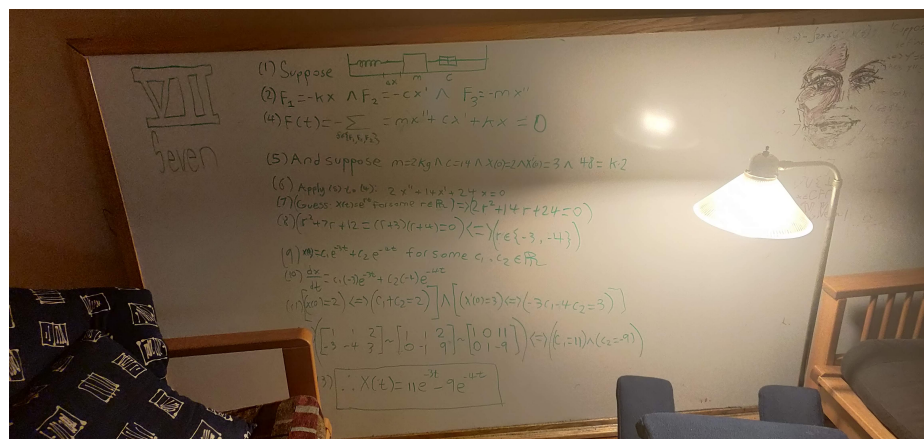 VII
Seven
(1) Suppose
Δx m c
(2) F₁=-kx ∧ F₂=-cx' ∧ F₃=-mx''
(4) F(t)=-∑ =mx''+cx'+kx=0
(5) And suppose m=2kg ∧ c=14 ∧ x(0)=2 ∧ x'(0)=3 ∧ 48=k·2
(6) Apply (5) to (4): 2x''+14x'+24x=0
(7) (Guess x(t)=eʳᵗ for some r∈ℝ)=>(2r²+14r+24=0)
(8) (r²+7r+12=(r+3)(r+4)=0)<=>(r∈{-3,-4})
(9) x(t)=c₁e^-3t+c₂e^-4t for some c₁,c₂∈ℝ
(10) dx/dt=c₁(-3)e^-3t+c₂(-4)e^-4t
[(x(0)=2)<=>(c₁+c₂=2)]∧[(x'(0)=3)<=>(-3c₁-4c₂=3)]
([1 1 2; -3 -4 3]~[1 1 2; 0 -1 9]~[1 0 11; 0 1 -9])<=>(c₁=11)∧(c₂=-9)
3) ∴ x(t)=11e^-3t-9e^-4t